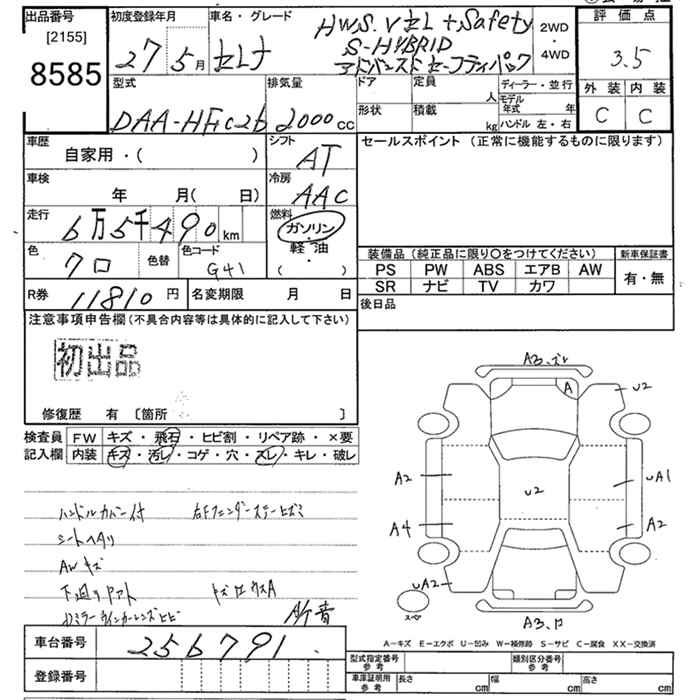 出品番号 初度登録年月 車名・グレード 2WD 評価点
[2155] HWS.V セレ +Safety ・
8585 27年5月 セレナ S-HYBRID 4WD 3.5
アドバンスドセーフティパック
型式 排気量 ドア 定員 人 ディーラー・並行 外装 内装
DAA-HFC26 2000cc 形状 積載 kg モデル年式 年 C C
ハンドル 左・右
車歴 自家用・( ) シフト AT セールスポイント (正常に機能するものに限ります)
車検 年 月( 日) 冷房 AAC
走行 6万5千490km 燃料 ガソリン・軽油
色 クロ 色替 色コード G41 ( )
装備品 (純正品に限り〇をつけてください) 新車保証書
PS PW ABS エアB AW 有・無
SR ナビ TV カワ
R券 11810円 名変期限 月 日 後日品
注意事項申告欄(不具合内容等は具体的に記入して下さい)
初出品
修復歴 有 [箇所 ]
検査員 FW キズ・飛石・ヒビ割・リペア跡・×要
記入欄 内装 キズ・汚レ・コゲ・穴・スレ・キレ・破レ
A3.ズレ
A U2
A2 U2 UA1
A4 A2
UA2
スペア A3.
ハンドルカバー付 右Fフェンダーステーヒズミ
シートヘタリ
AWキズ
下廻り キズ
ミラーウインカーレンズヒビ
A-キズ E-エクボ U-凹み W-補修跡 S-サビ C-腐食 XX-交換済
車台番号 256791
登録番号
型式指定番号参考 類別区分番号参考
車庫証明用参考 長さ cm 幅 cm 高さ cm